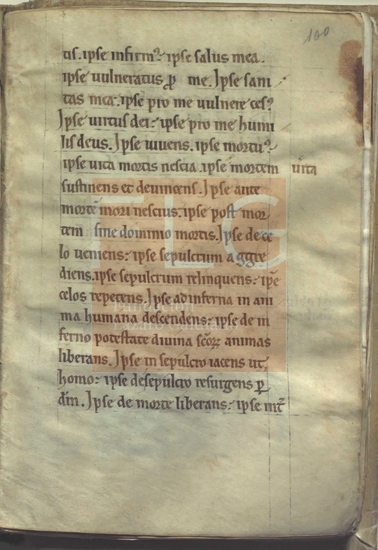 160
tis. ipse infirm⁹: ipse salus mea.
ipse vulneratus ꝑ me. Ipse sani
tas mea. ipse pro me vulnere ces⁹
Ipse virtus dei: ipse pro me humi
lis deus. Ipse vivens. ipse mortu⁹
ipse vita mortis nescia. ipse mortem
sustinens et devincens. Ipse ante
mortē mori nescius: ipse post mor
tem sine dominio mortis. Ipse de ce
lo veniens: ipse sepulcrum aggre
diens. ipse sepulcrum relinquens: ip̄e
celos repetens. Ipse ad inferna in ani
ma humana descendens: ipse de in
ferno potestate divina scōꝝ animas
liberans. Ipse in sepulcro iacens ut
homo: ipse de sepulcro resurgens ꝑ
dm̄. Ipse de morte liberans: ipse